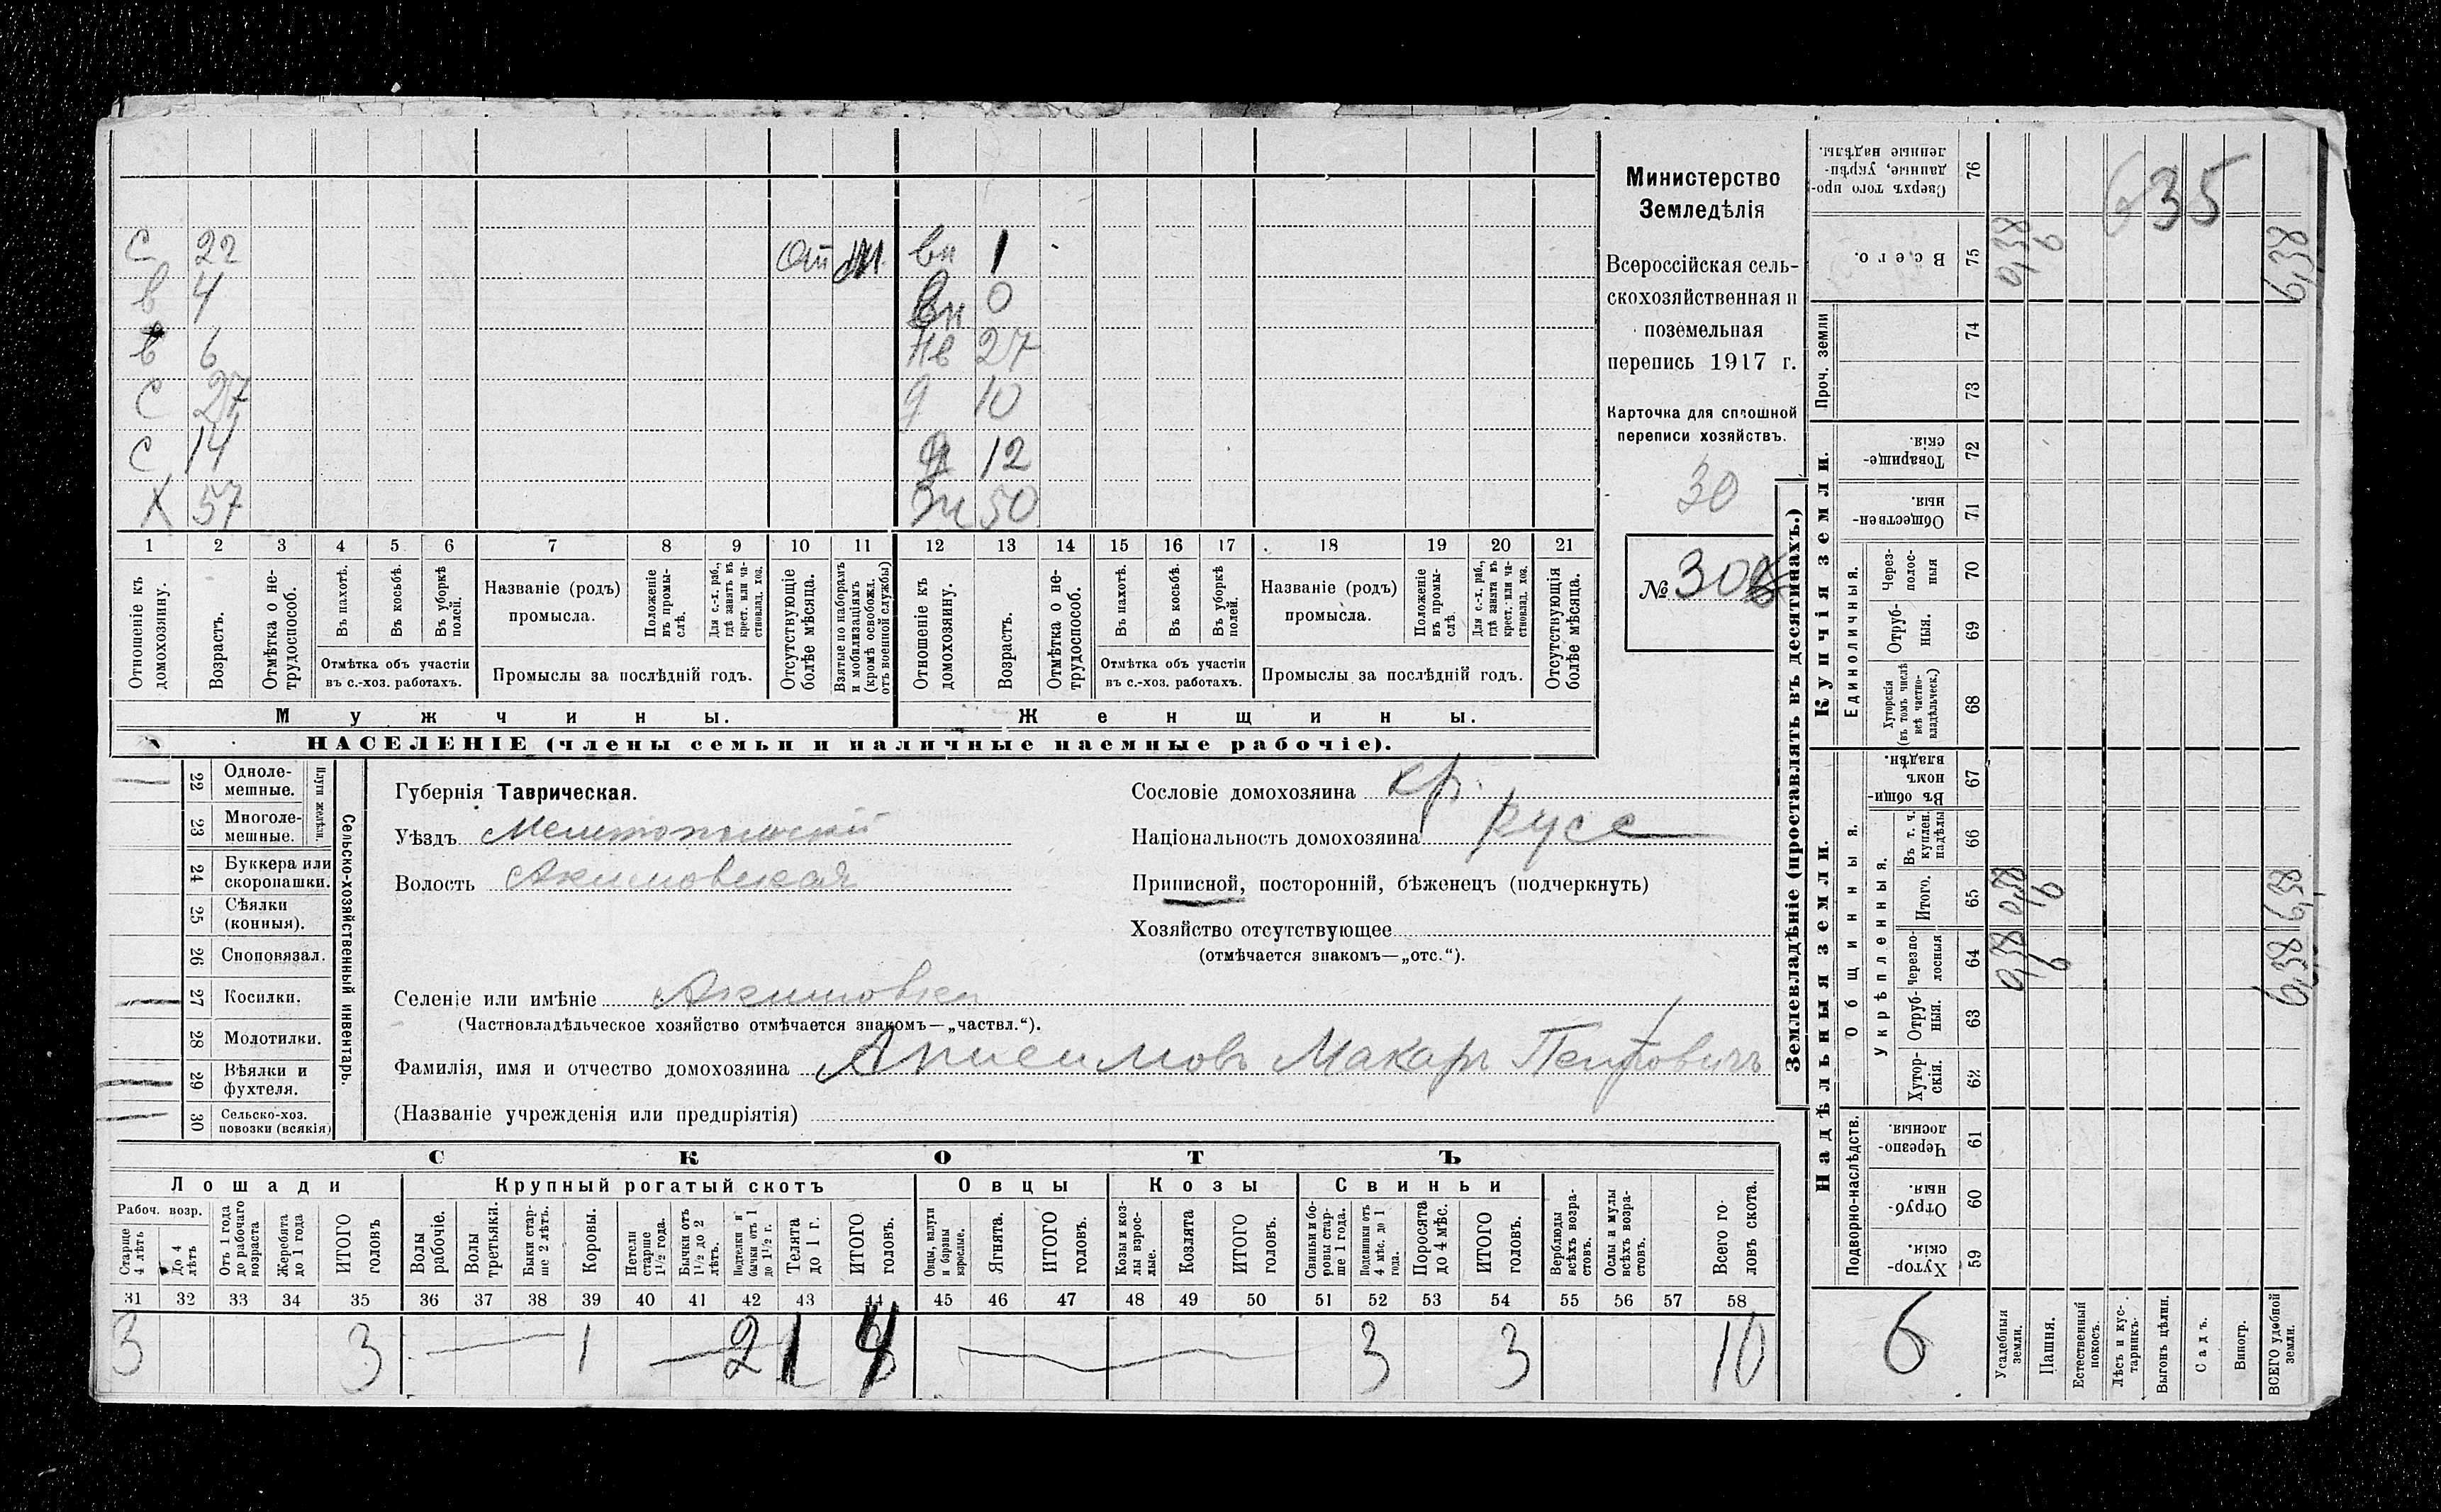 Министерство
Земледѣлія
Всероссійская сель-
скохозяйственная и
поземельная
перепись 1917 г.
Карточка для сплошной
переписи хозяйствъ.
30
№ 30
С 22 От М. вн 1
в 4 вн 0
в 6 нв 27
С 27 д 10
С 14 д 12
Х 57 Ж 50
1 2 3 4 5 6 7 8 9 10 11 12 13 14 15 16 17 18 19 20 21
Отношеніе къ домохозяину.
Возрастъ.
Отмѣтка о не-трудоспособ.
Въ пахотѣ.
Въ косьбѣ.
Въ уборкѣ полей.
Отмѣтка объ участіи
въ с.-хоз. работахъ.
Названіе (родъ)
промысла.
Положеніе въ промы-слѣ.
Для с.-х. раб., гдѣ занятъ въ крест. или ча-стновлад. хоз.
Промыслы за послѣдній годъ.
Отсутствующіе болѣе мѣсяца.
Взятые по наборамъ и мобилизаціямъ (кромѣ освобожд. отъ военной службы)
Отношеніе къ домохозяину.
Возрастъ.
Отмѣтка о не-трудоспособ.
Въ пахотѣ.
Въ косьбѣ.
Въ уборкѣ полей.
Отмѣтка объ участіи
въ с.-хоз. работахъ.
Названіе (родъ)
промысла.
Положеніе въ промы-слѣ.
Для с.-х. раб., гдѣ занята въ крест. или ча-стновлад. хоз.
Промыслы за послѣдній годъ.
Отсутствующія болѣе мѣсяца.
Мужчины.
Женщины.
НАСЕЛЕНІЕ (члены семьи и наличные наемные рабочіе).
22 Одноле-мешные.
23 Многоле-мешные.
Плуги желѣзн.
24 Буккера или скоропашки.
25 Сѣялки (конныя).
26 Сноповязал.
27 Косилки.
28 Молотилки.
29 Вѣялки и фухтеля.
30 Сельско-хоз. повозки (всякія)
Сельско-хозяйственный инвентарь.
Губернія Таврическая.
Уѣздъ Мелитопольский
Волость Акимовская
Сословіе домохозяина кр.
Національность домохозяина русс
Приписной, посторонній, бѣженецъ (подчеркнуть)
Хозяйство отсутствующее
(отмѣчается знакомъ—„отс.“).
Селеніе или имѣніе Акимовка
(Частновладѣльческое хозяйство отмѣчается знакомъ—„частвл.“).
Фамилія, имя и отчество домохозяина Анисимовъ Макаръ Петровичъ
(Названіе учрежденія или предпріятія)
СКОТЪ
Лошади
Крупный рогатый скотъ
Овцы
Козы
Свиньи
Рабоч. возр.
Старше 4 лѣтъ
До 4 лѣтъ
Отъ 1 года до рабочаго возраста
Жеребята до 1 года
ИТОГО головъ
Волы рабочіе.
Волы третьяки.
Быки стар-ше 2 лѣтъ.
Коровы.
Нетели старше 1½ года.
Бычки отъ 1½ до 2 лѣтъ.
Подтелки и бычки отъ 1 до 1½ г.
Телята до 1 г.
ИТОГО головъ.
Овцы, валухи и бараны взрослые.
Ягнята.
ИТОГО головъ.
Козы и коз-лы взрос-лые.
Козлята
ИТОГО головъ.
Свиньи и бо-ровы стар-ше 1 года.
Подсвинки отъ 4 мѣс. до 1 года.
Поросята до 4 мѣс.
ИТОГО головъ.
Верблюды всѣхъ возра-стовъ.
Ослы и мулы всѣхъ возра-стовъ.
Всего го-ловъ скота.
31 32 33 34 35 36 37 38 39 40 41 42 43 44 45 46 47 48 49 50 51 52 53 54 55 56 57 58
3 3 1 2 1 4 3 3 10
Землевладѣніе (проставлять въ десятинахъ.)
Купчія земли.
Надѣльныя земли.
Сверхъ того про-данные, укрѣп-ленные надѣлы. 76
Всего. 75
Проч. земли
74
73
Товарище-скія. 72
Обществен-ныя. 71
Единоличныя.
Через-полос-ныя 70
Отруб-ныя. 69
Хуторскія (въ томъ числѣ всѣ частно-владѣльческ.) 68
Общинныя.
Въ общин-номъ владѣн. 67
Укрѣпленныя.
Въ т. ч. куплен. надѣлы 66
Итого. 65
Черезпо-лосныя 64
Отруб-ныя. 63
Хутор-скія. 62
Подворно-наслѣдств.
Черезпо-лосныя. 61
Отруб-ныя. 60
Хутор-скія. 59
635
6
Усадебныя земли.
Пашня.
Естественный покосъ.
Лѣсъ и кус-тарникъ.
Выгонъ цѣлин.
Садъ.
Виногр.
ВСЕГО удобной земли.